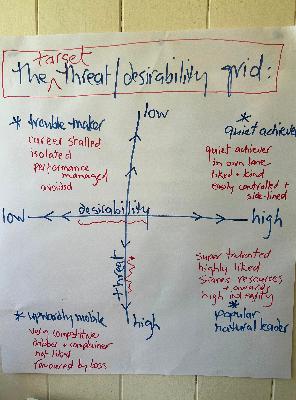 target
the ^ threat/desirability grid:
low
* trouble maker
career stalled
isolated
performance
managed
avoided
* quiet achiever
quiet achiever
in own lane
liked + kind
easily controlled +
side-lined
low
desirability
high
threat
high
* upwardly mobile
very competitive
dobber + complainer
not liked
favoured by boss
super talented
highly liked
shares resources
+ awards
high integrity
* popular
natural leader